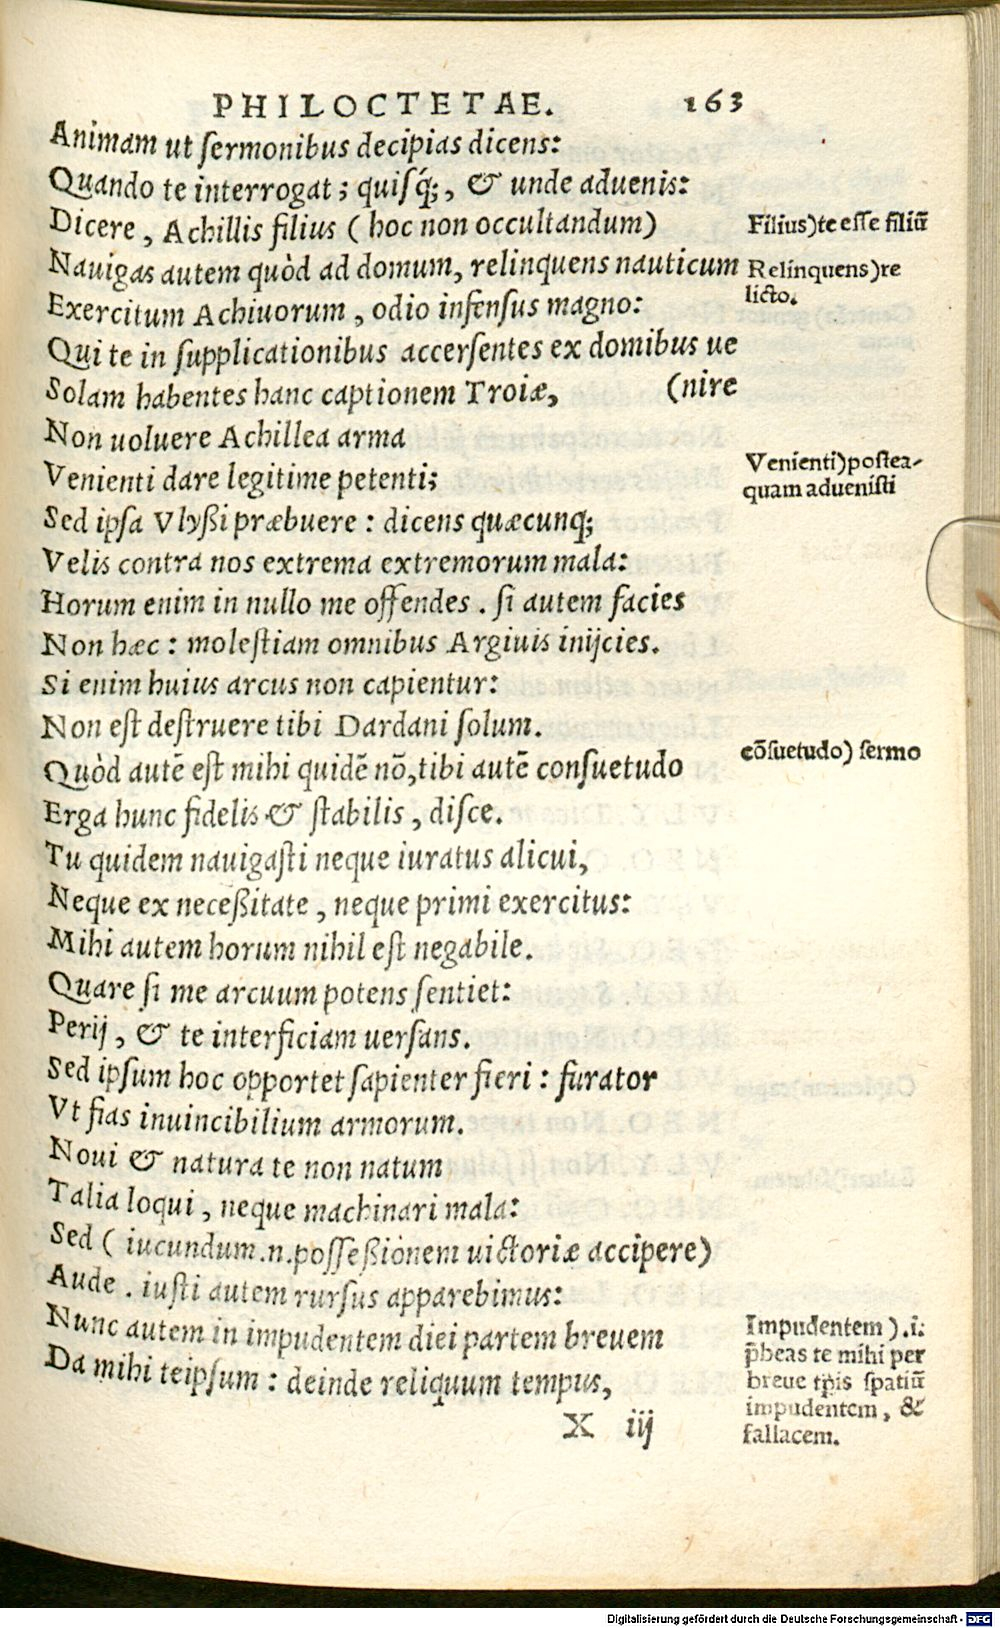 PHILOCTETAE. 163
Animam ut sermonibus decipias dicens:
Quando te interrogat; quisq́;, & unde aduenis:
Dicere, Achillis filius (hoc non occultandum)
Filius)te esse filiũ
Nauigas autem quòd ad domum, relinquens nauticum
Relinquens)re
licto.
Exercitum Achiuorum, odio infensus magno:
Qui te in supplicationibus accersentes ex domibus ue
Solam habentes hanc captionem Troiæ, (nire
Non uoluere Achillea arma
Venienti dare legitime petenti;
Venienti)postea-
quam aduenisti
Sed ipsa Vlyßi præbuere: dicens quæcunq;
Velis contra nos extrema extremorum mala:
Horum enim in nullo me offendes. si autem facies
Non hæc: molestiam omnibus Argiuis inijcies.
Si enim huius arcus non capientur:
Non est destruere tibi Dardani solum.
Quòd autẽ est mihi quidẽ nõ, tibi autẽ consuetudo
cõsuetudo) sermo
Erga hunc fidelis & stabilis, disce.
Tu quidem nauigasti neque iuratus alicui,
Neque ex neceßitate, neque primi exercitus:
Mihi autem horum nihil est negabile.
Quare si me arcuum potens sentiet:
Perij, & te interficiam uersans.
Sed ipsum hoc opportet sapienter fieri: furator
Vt fias inuincibilium armorum.
Noui & natura te non natum
Talia loqui, neque machinari mala:
Sed (iucundum.n.posseßionem uictoriæ accipere)
Aude. iusti autem rursus apparebimus:
Nunc autem in impudentem diei partem breuem
Da mihi teipsum: deinde reliquum tempus,
Impudentem).i:
p̃beas te mihi per
breue tp̃is spatiũ
impudentem, &
fallacem.
X iij
Digitalisierung gefördert durch die Deutsche Forschungsgemeinschaft - DFG